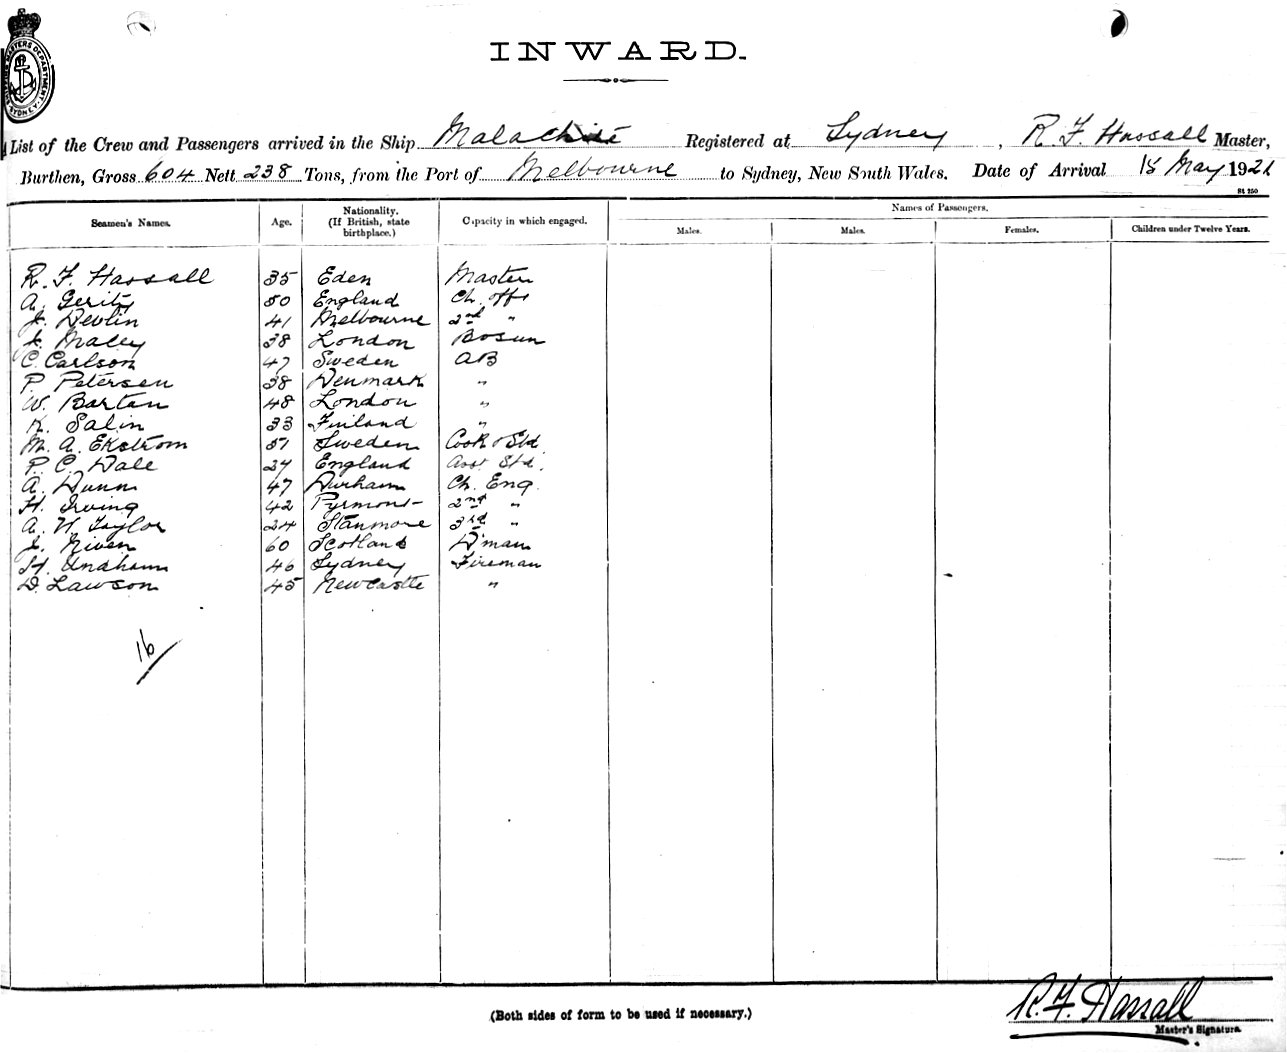 SHIPPING MASTERS DEPARTMENT SYDNEY
INWARD.
List of the Crew and Passengers arrived in the Ship Malachite Registered at Sydney, R. F. Hassall Master,
Burthen, Gross 604 Nett 238 Tons, from the Port of Melbourne to Sydney, New South Wales. Date of Arrival 15 May 1921
St 250
Seamen's Names. Age. Nationality. (If British, state birthplace.) Capacity in which engaged. Names of Passengers.
Males. Males. Females. Children under Twelve Years.
R. F. Hassall 35 Eden Master
A. Gerity 50 England Ch. Offr
J. Devlin 41 Melbourne 2nd "
J. Maley 38 London Bosun
C. Carlson 47 Sweden AB
P. Petersen 38 Denmark "
W. Bartan 48 London "
K. Salin 33 Finland "
M. A. Ekstrom 51 Sweden Cook & Std.
P. C. Dale 27 England Asst Std.
A. Dunn 47 Durham Ch. Eng.
H. Irving 42 Pyrmont 2nd "
A. H. Taylor 24 Stanmore 3rd "
J. Niven 60 Scotland D'man
H. Undham 46 Sydney Fireman
D. Lawson 45 Newcastle "
16
(Both sides of form to be used if necessary.)
R. F. Hassall
Master's Signature.